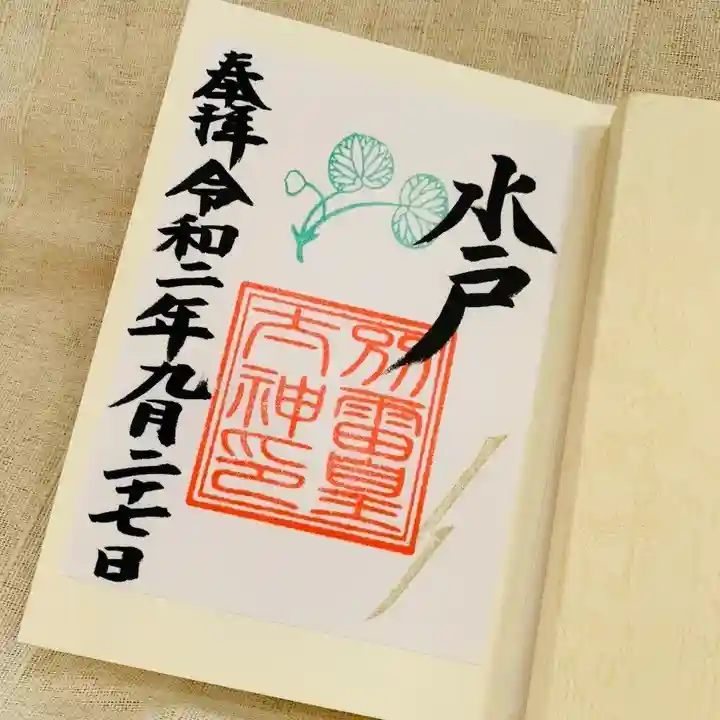 水戸
別雷皇
大神印
奉拝 令和二年九月二十七日